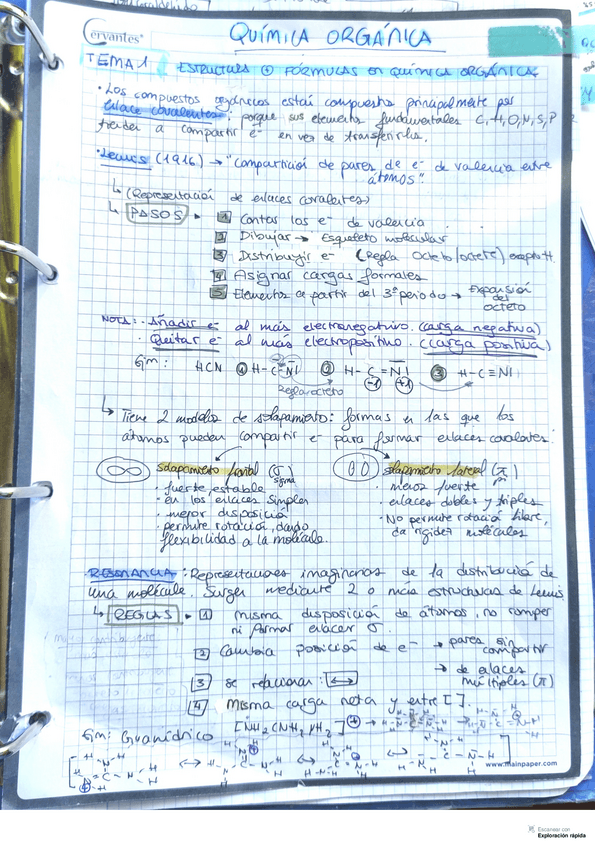 Cervantes
QUÍMICA ORGÁNICA
TEMA 1 ESTRUCTURA FÓRMULAS en QUÍMICA ORGÁNICA.
• Los compuestos orgánicos están compuestos principalmente por
enlace covalentes, porque sus elementos fundamentales C, H, O, N, S, P
tienden a compartir e⁻ en vez de transferirlos.
• Lewis (1916) → "Compartición de pares de e⁻ de valencia entre
átomos".
↳ (Representación de enlaces covalentes)
↳ PASOS ▸ 1 Contar los e⁻ de valencia
2 Dibujar → Esqueleto molecular
3 Distribuir e⁻ (Regla octeto/octete) excepto H.
4 Asignar cargas formales
5 Elementos a partir del 3º periodo → Expansión
del
octeto
NOTA: · Añadir e⁻ al más electronegativo. (carga negativa)
· Quitar e⁻ al más electropositivo. (carga positiva)
Ejm: HCN ① H-C-N̄| ② H-C=N̄| ③ H-C≡N|
-1 +1
Regla octeto
↳ Tiene 2 modelos de solapamiento: formas en las que los
átomos pueden compartir e⁻ para formar enlaces covalentes.
solapamiento frontal (σ) solapamiento lateral (π)
sigma pi
· fuerte estable · menor fuerte
· en los enlaces simples · enlaces dobles y triples
· mejor disposición · No permite rotación libre,
· permite rotación, dando da rigidez moléculas
flexibilidad a la molécula.
RESONANCIA: Representaciones imaginarias de la distribución de
una molécula. Surge mediante 2 o más estructuras de Lewis
↳ REGLAS ▸ 1 misma disposición de átomos, no romper
ni formar enlaces σ
2 Cambia posición de e⁻ → pares sin
compartir
→ de enlaces
múltiples (π)
3 se relacionan: ↔
4 Misma carga neta y entre [ ].
Ejm: Guanídrico [NH₂CNH₂NH₂]⊕
www.mainpaper.com
Escanear con
Exploración rápida